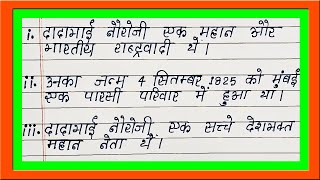 i. दादाभाई नौरोजी एक महान और
भारतीय राष्ट्रवादी थे।
ii. उनका जन्म 4 सितम्बर 1825 को मुंबई
एक पारसी परिवार में हुआ था।
iii. दादाभाई नौरोजी एक सच्चे देशभक्त
महान नेता थे।